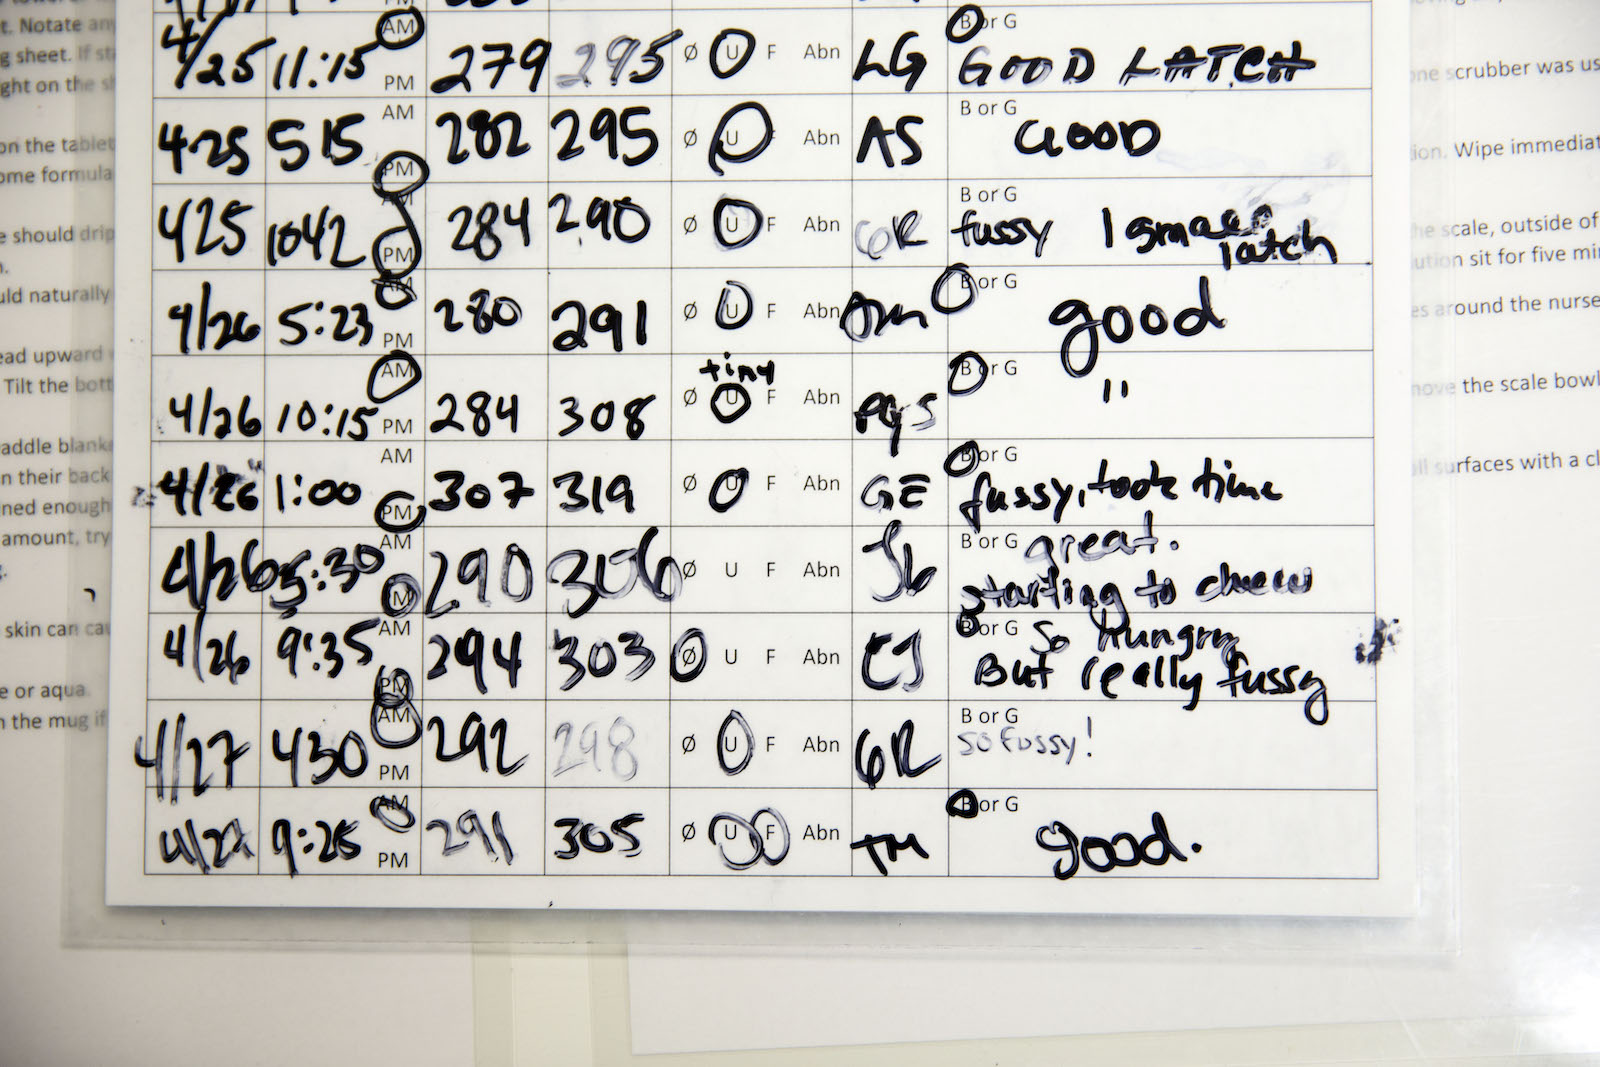 t. Notate any
g sheet. If st
ght on the s
on the tablet
ome formula
e should drip
uld naturally
ead upward
Tilt the bott
addle blank
n their back
ned enough
amount, try
skin can cau
e or aqua.
n the mug if
AM
B or G
4/25 11:15 279 295 Ø U F Abn LG GOOD LATCH
PM
AM
B or G
4-25 515 282 295 Ø U F Abn AS GOOD
PM
AM
B or G
4/25 1042 284 290 Ø U F Abn GR fussy 1 small latch
PM
AM
B or G
4/26 5:23 280 291 Ø U F Abn Am good
PM
AM
tiny
B or G
4/26 10:15 284 308 Ø U F Abn "
PM
AM
B or G
4/26 1:00 307 319 Ø U F Abn GE fussy, took time
PM
AM
B or G great.
4/26 5:30 290 306 Ø U F Abn starting to chew
PM
AM
B or G So hungry
4/26 9:35 294 303 Ø U F Abn CJ But really fussy
PM
AM
B or G
4/27 430 292 298 Ø U F Abn GR so fussy!
PM
AM
B or G
4/27 9:25 291 305 Ø U F Abn TM good.
PM
one scrubber was us
ion. Wipe immediat
he scale, outside of
ution sit for five mi
es around the nurse
move the scale bowl
ll surfaces with a cl